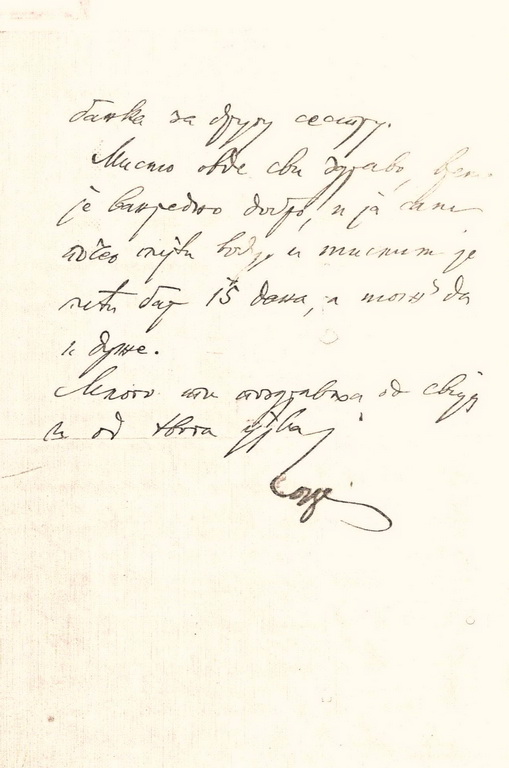 банка за другу сестру.
Мисмо овде сви здраво,
је ванредно добро, и ја сам
почео пити воду и мислим је
пити бар 15 дана, а може да
и дуже.
Много ти поздравља од свију
и од твога ујка